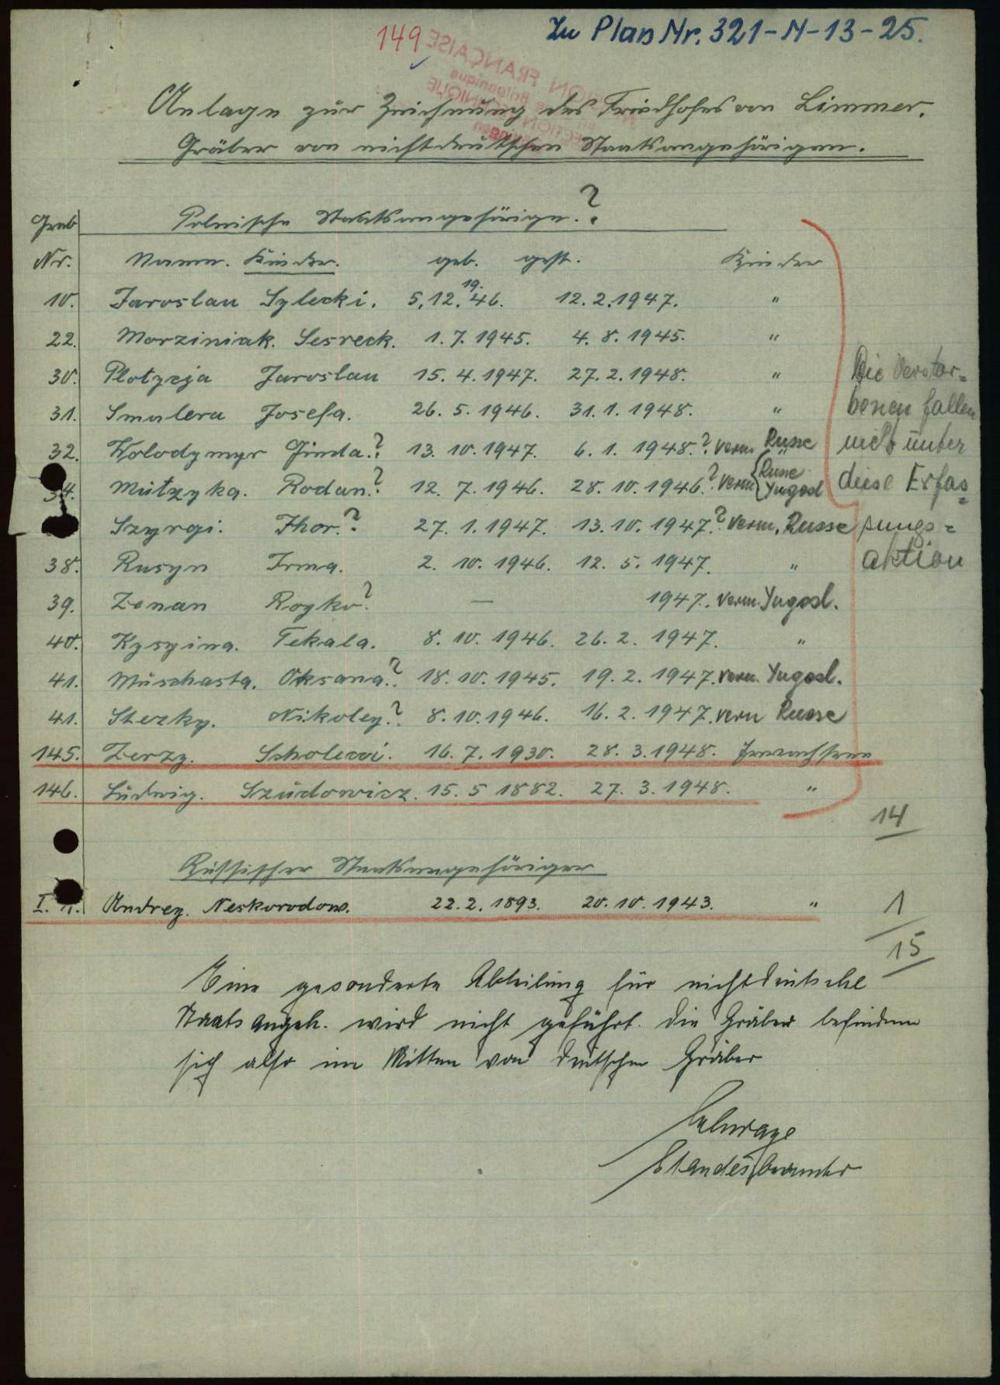 149
Zu Plan Nr. 321-N-13-25.
Anlage zur Zeichnung des Friedhofes von Limmer.
Gräber von nichtdeutschen Staatsangehörigen.
Grab Polnische Staatsangehörige. ?
Nr. Name. Kinder. geb. gest. Kinder
10. Jaroslau Sylecki. 5.12.1946. 12.2.1947. "
22. Morziniak. Sesreck. 1.7.1945. 4.8.1945. "
30. Plotyzja Jaroslau 15.4.1947. 27.2.1948. "
31. Smalera Josefa. 26.5.1946. 31.1.1948. "
32. Kolodymyr Ginda.? 13.10.1947. 6.1.1948.? verm. Russe
34. Mutzyka. Rodan.? 12.7.1946. 28.10.1946.? verm { Russe Yugosl
Szyrgi. Ihor.? 27.1.1947. 13.10.1947.? verm. Russe
38. Rusyn Irma. 2.10.1946. 12.5.1947. "
39. Zenan Royko? — 1947. verm. Yugosl.
40. Kysyina. Tekala. 8.10.1946. 26.2.1947. "
41. Muschasta. Oksana.? 18.10.1945. 19.2.1947. verm. Yugosl.
41. Sterky. Nikoley? 8.10.1946. 16.2.1947. verm Russe
145. Zerzy. Scholewi. 16.7.1930. 28.3.1948. Erwachsene
146. Ludwig. Szudowicz. 15.5.1882. 27.3.1948. "
Die Verstor=
benen fallen
nicht unter
diese Erfas=
sungs=
aktion
14
Russischer Staatsangehöriger
I. Andrey. Neskorodow. 22.2.1893. 20.10.1943. " 1
15
Eine gesonderte Abteilung für nichtdeutsche
Staatsangeh. wird nicht geführt. die Gräber befinden
sich also im Mitten von deutschen Gräber
Standesbeamter